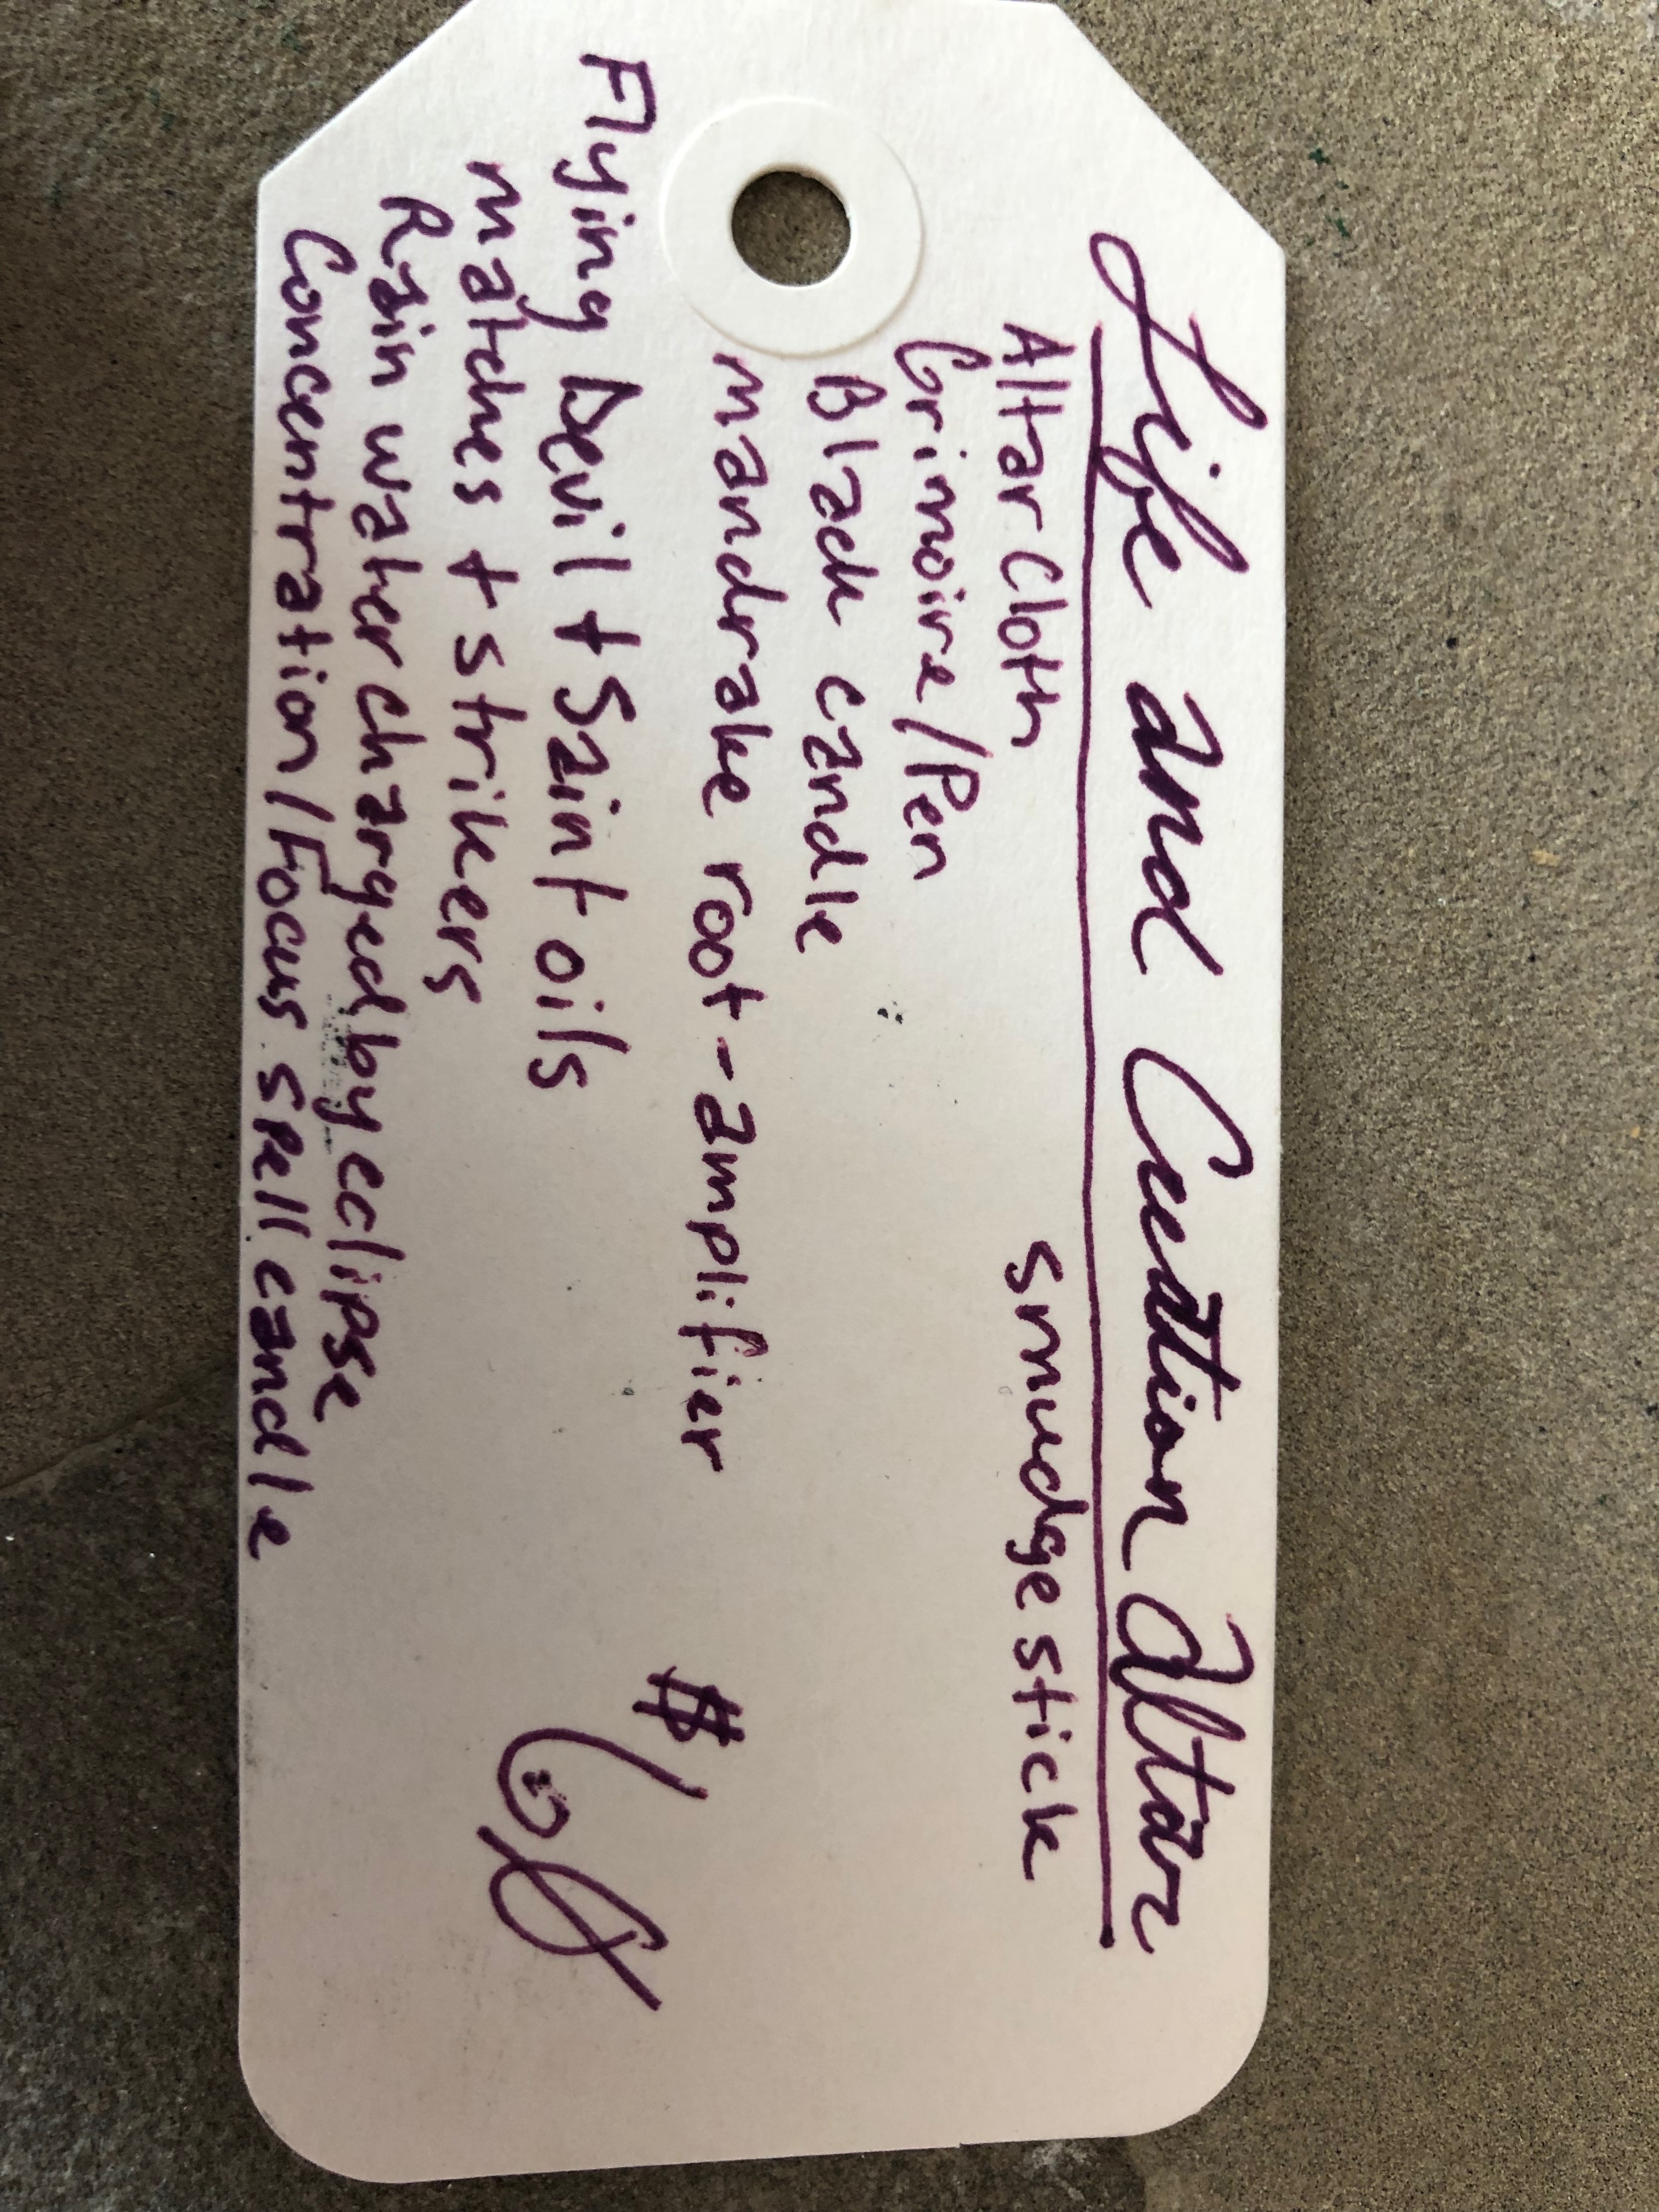 Life and Creation Altar
Altar Cloth smudge stick
Grimoire/Pen
Black candle
mandrake root - amplifier
Flying Devil + Saint oils
matches + strikers
Rain water charged by eclipse
Concentration/Focus spell candle
$68